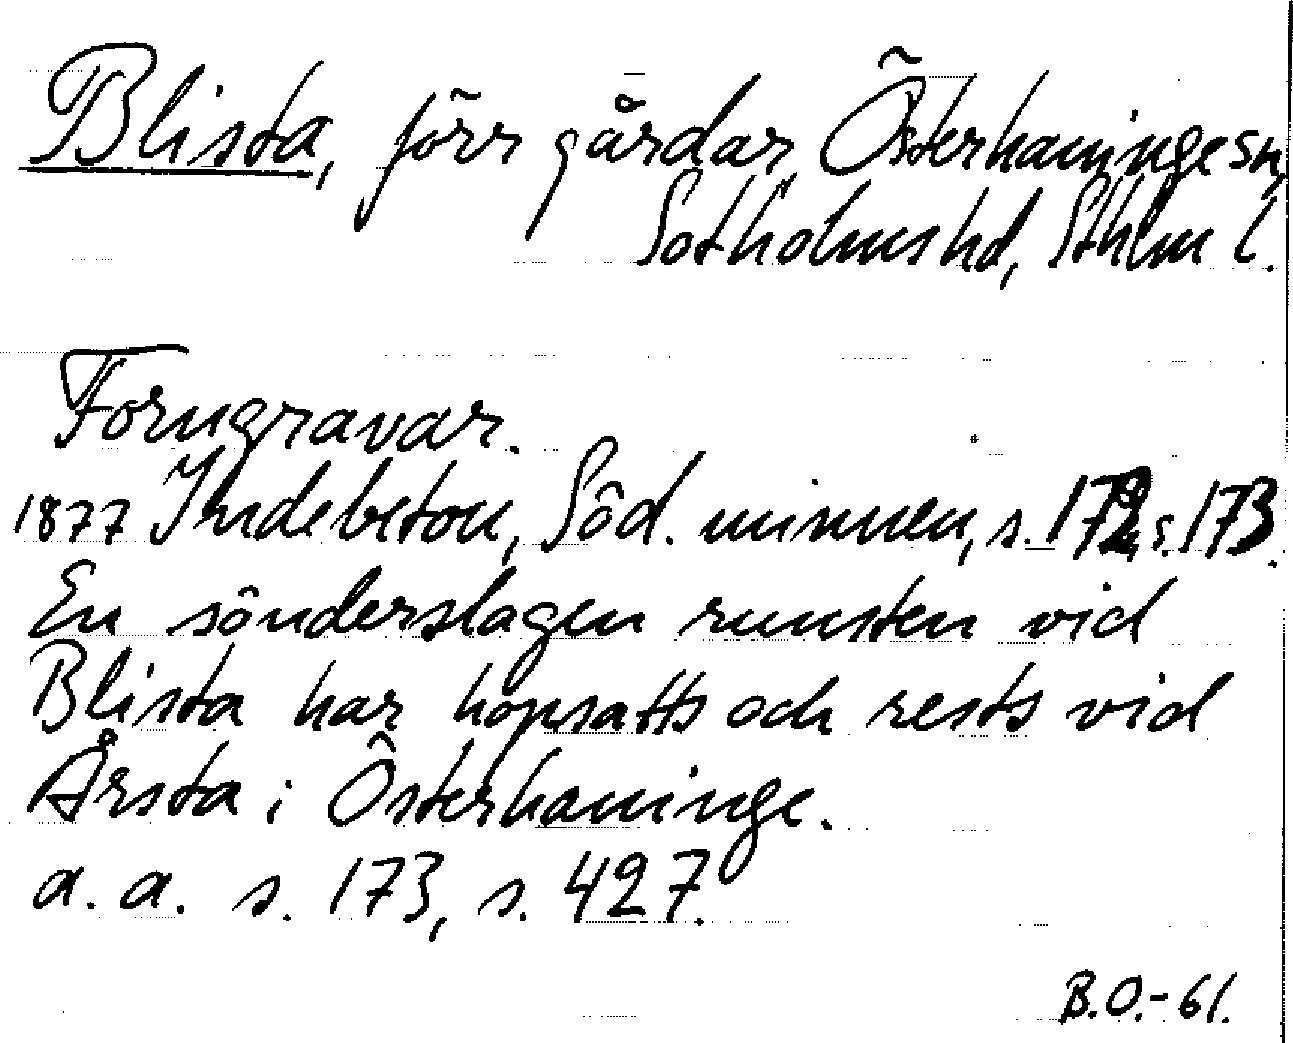 Blista, förr gårdar, Österhaninge sn,
Sotholms hd, Sthlm l.
Forngravar.
1877 Indebetou, Söd. minnen, s. 172, s. 173.
En sönderslagen runsten vid
Blista har hopsatts och rests vid
Årsta i Österhaninge.
a. a. s. 173, s. 427.
B.O.-61.